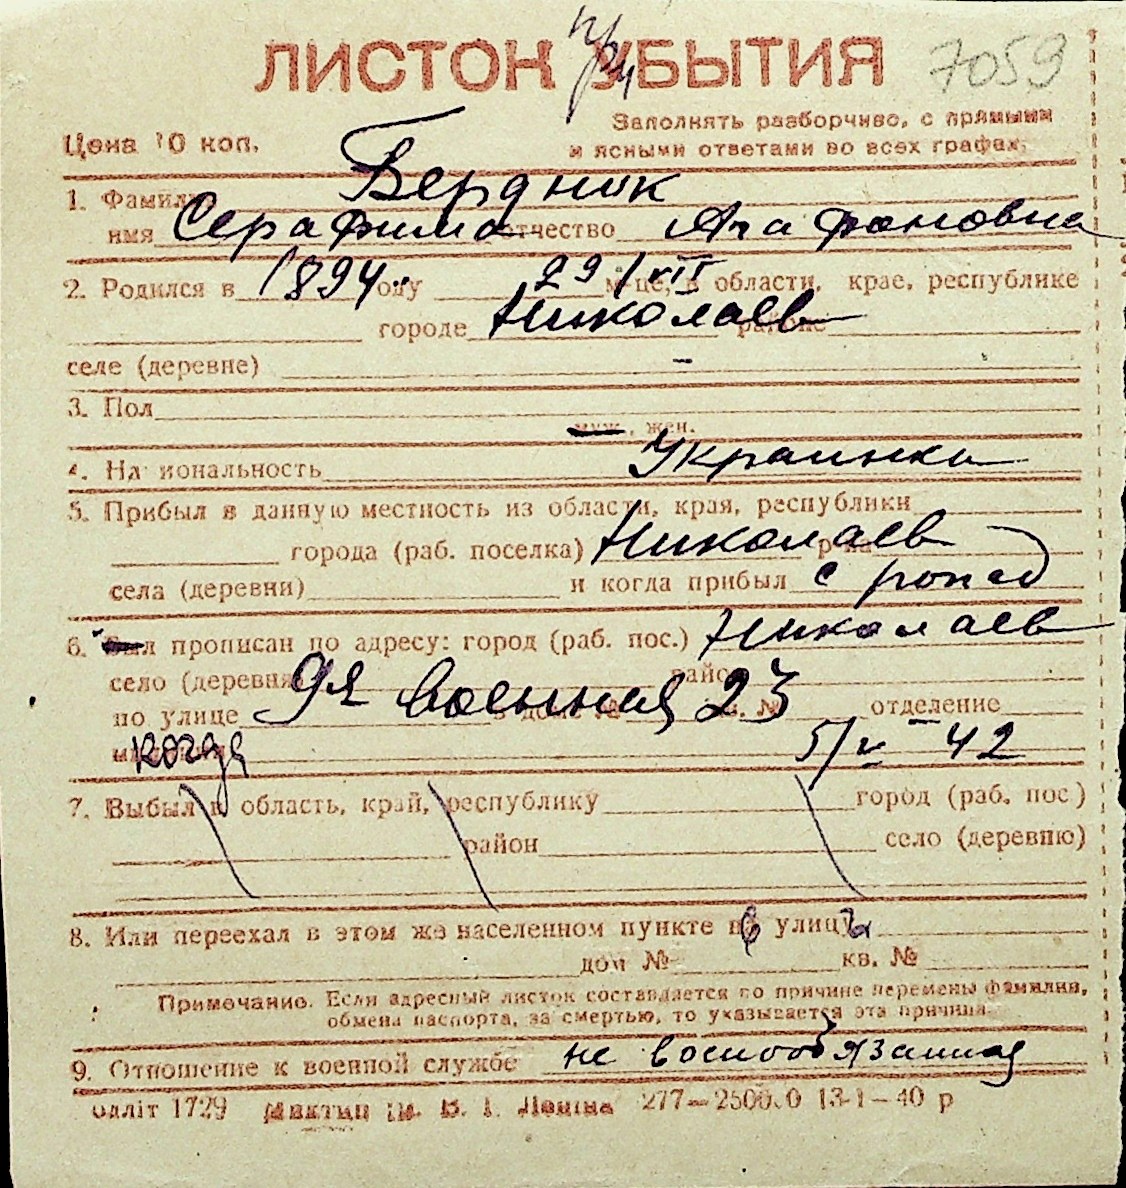 ЛИСТОК УБЫТИЯ
при
7059
Цена 10 коп.
Заполнять разборчиво, с прямыми
и ясными ответами во всех графах.
1. Фамилия Бердник
имя Серафима отчество Агафоновна
2. Родился в 1894 году 29/XII м-це, в области, крае, республике
городе Николаев районе
селе (деревне) -
3. Пол
муж., жен.
4. Национальность Украинка
5. Прибыл в данную местность из области, края, республики
города (раб. поселка) Николаев р-на
села (деревни) и когда прибыл с рожд
6. Был прописан по адресу: город (раб. пос.) Николаев
село (деревня) район
по улице 9я Военная 23 в доме № кв. № отделение
милиции когда 5/V - 42
7. Выбыл в область, край, республику город (раб. пос)
район село (деревню)
8. Или переехал в этом же населенном пункте в улицы
дом № кв. №
Примечание. Если адресный листок составляется по причине перемены фамилии,
обмена паспорта, за смертью, то указывается эта причина.
9. Отношение к военной службе не военнообязанная
Одліт 1729 ім. В. І. Леніна 277—2500.0 13-1-40 р